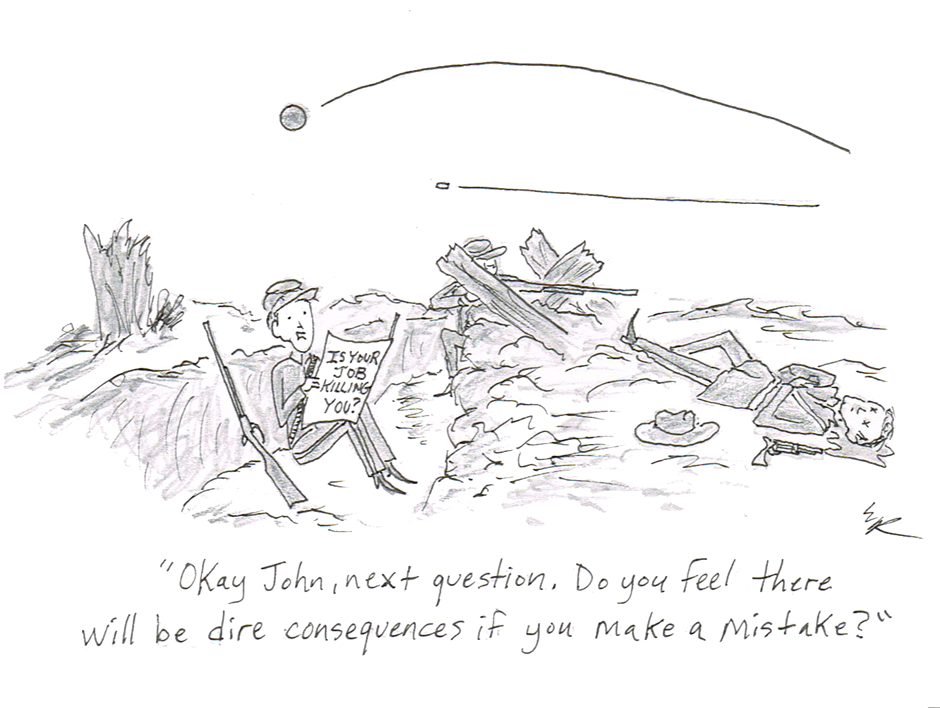 IS YOUR
JOB
KILLING
YOU?
ER
"Okay John, next question. Do you feel there
will be dire consequences if you make a mistake?"